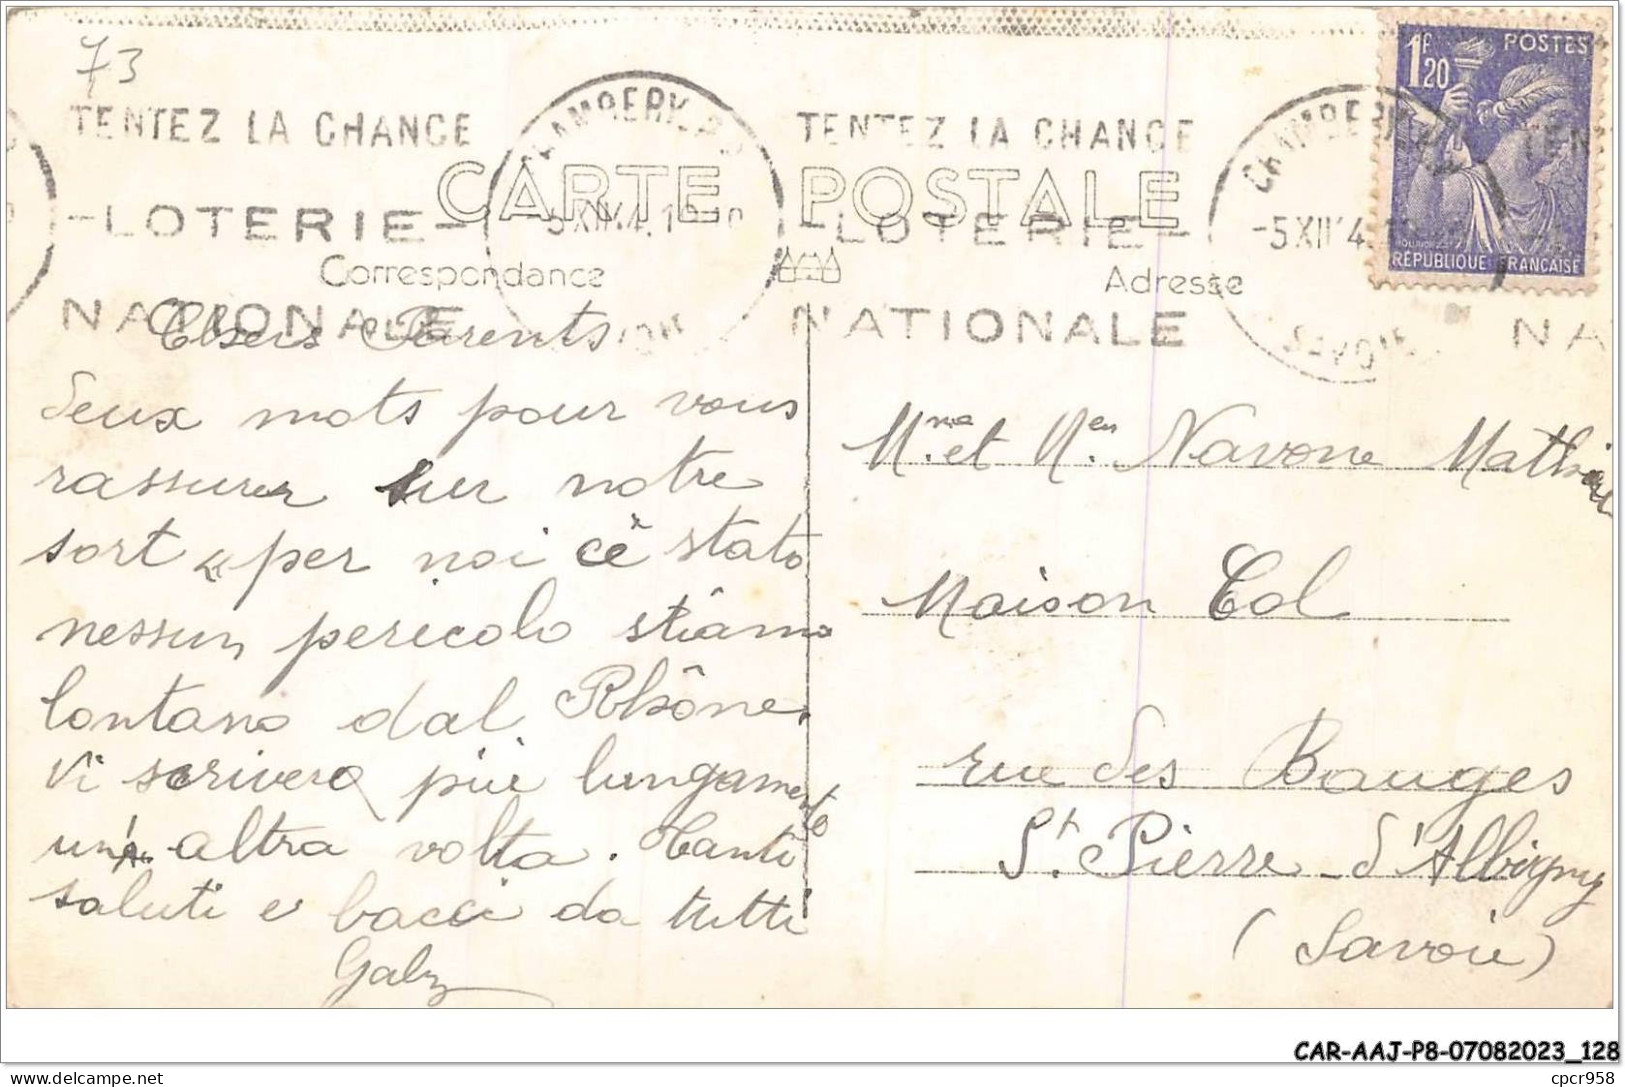 73
TENTEZ LA CHANCE
LOTERIE
NATIONALE
TENTEZ LA CHANCE
LOTERIE
NATIONALE
CHAMBERY
-5 XII 4
SAVOIE
TEN
NA
1f20
POSTES
RÉPUBLIQUE FRANÇAISE
CARTE POSTALE
Correspondance
Adresse
Chers Parents
Deux mots pour vous
rassurer sur notre
sort " per noi c'è stato
nessun pericolo stiamo
lontano dal Rhône.
Vi scriverò più lungamente
un'altra volta. Tanti
saluti e bacci da tutti
Gaby
Mme et Mr Navone Mathieu
Maison Col
rue des Bauges
St. Pierre d'Albigny
(Savoie)
CAR-AAJ-P8-07082023_128
delcampe.net
cpcr958